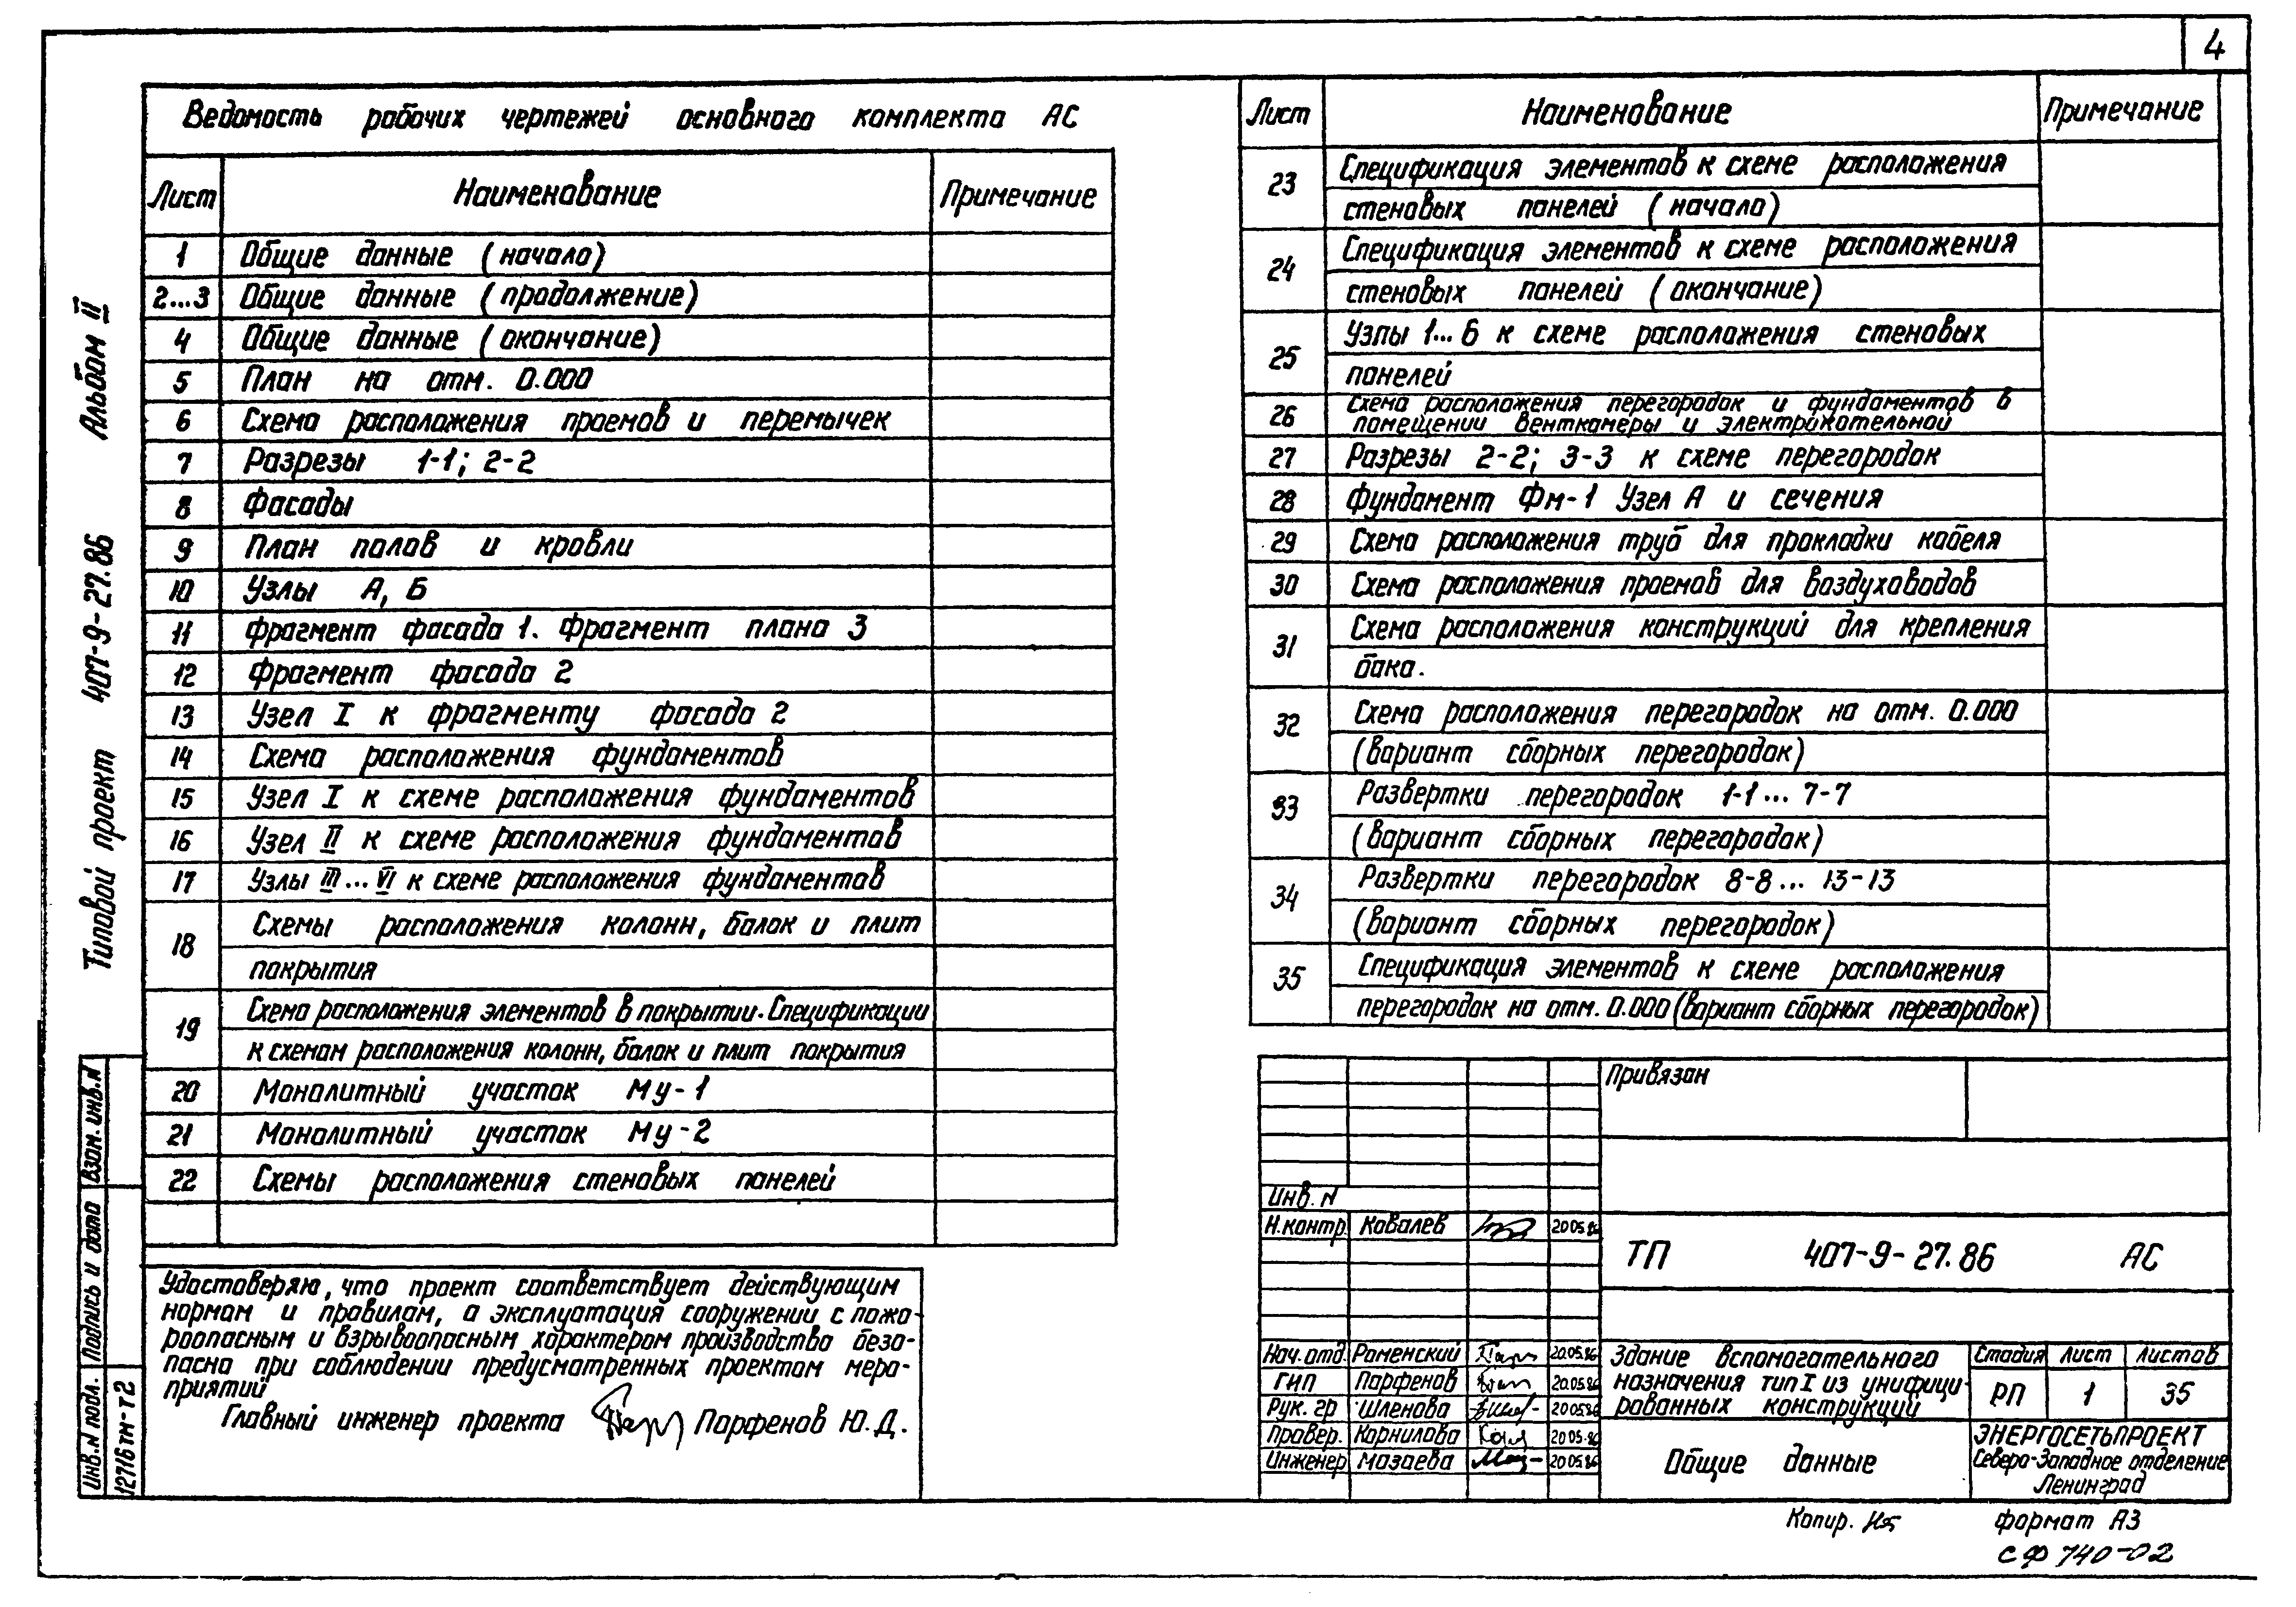 4
Ведомость рабочих чертежей основного комплекта АС
Лист Наименование Примечание
1 Общие данные (начало)
2...3 Общие данные (продолжение)
4 Общие данные (окончание)
5 План на отм. 0.000
6 Схема расположения проемов и перемычек
7 Разрезы 1-1; 2-2
8 Фасады
9 План полов и кровли
10 Узлы А, Б
11 Фрагмент фасада 1. Фрагмент плана 3
12 Фрагмент фасада 2
13 Узел I к фрагменту фасада 2
14 Схема расположения фундаментов
15 Узел I к схеме расположения фундаментов
16 Узел II к схеме расположения фундаментов
17 Узлы III...VI к схеме расположения фундаментов
18 Схемы расположения колонн, балок и плит
покрытия
19 Схема расположения элементов в покрытии. Спецификации
к схемам расположения колонн, балок и плит покрытия
20 Монолитный участок Му-1
21 Монолитный участок Му-2
22 Схемы расположения стеновых панелей
Лист Наименование Примечание
23 Спецификация элементов к схеме расположения
стеновых панелей (начало)
24 Спецификация элементов к схеме расположения
стеновых панелей (окончание)
25 Узлы 1...6 к схеме расположения стеновых
панелей
26 Схема расположения перегородок и фундаментов в
помещении венткамеры и электрокотельной
27 Разрезы 2-2; 3-3 к схеме перегородок
28 Фундамент Фм-1 Узел А и сечения
29 Схема расположения труб для прокладки кабеля
30 Схема расположения проемов для воздуховодов
31 Схема расположения конструкций для крепления
бака.
32 Схема расположения перегородок на отм. 0.000
(вариант сборных перегородок)
33 Развертки перегородок 1-1... 7-7
(вариант сборных перегородок)
34 Развертки перегородок 8-8... 13-13
(вариант сборных перегородок)
35 Спецификация элементов к схеме расположения
перегородок на отм. 0.000 (вариант сборных перегородок)
Удостоверяю, что проект соответствует действующим
нормам и правилам, а эксплуатация сооружений с пожа-
роопасным и взрывоопасным характером производства безо-
пасна при соблюдении предусмотренных проектом меро-
приятий
Главный инженер проекта Парфенов Ю.Д.
Типовой проект 407-9-27.86 Альбом II
Взам. инв. N
Подпись и дата
Инв. N подл.
12716тм-т2
Привязан
Инв. N
Н.контр. Ковалев 20.05.86
ТП 407-9-27.86 АС
Нач.отд. Раменский 20.05.86
ГИП Парфенов 20.05.86
Рук. гр Шленова 20.05.86
Провер. Корнилова 20.05.86
Инженер Мазаева 20.05.86
Здание вспомогательного
назначения тип I из унифици-
рованных конструкций
Стадия Лист Листов
РП 1 35
Общие данные
ЭНЕРГОСЕТЬПРОЕКТ
Северо-Западное отделение
Ленинград
Копир. формат А3
СФ 740-02